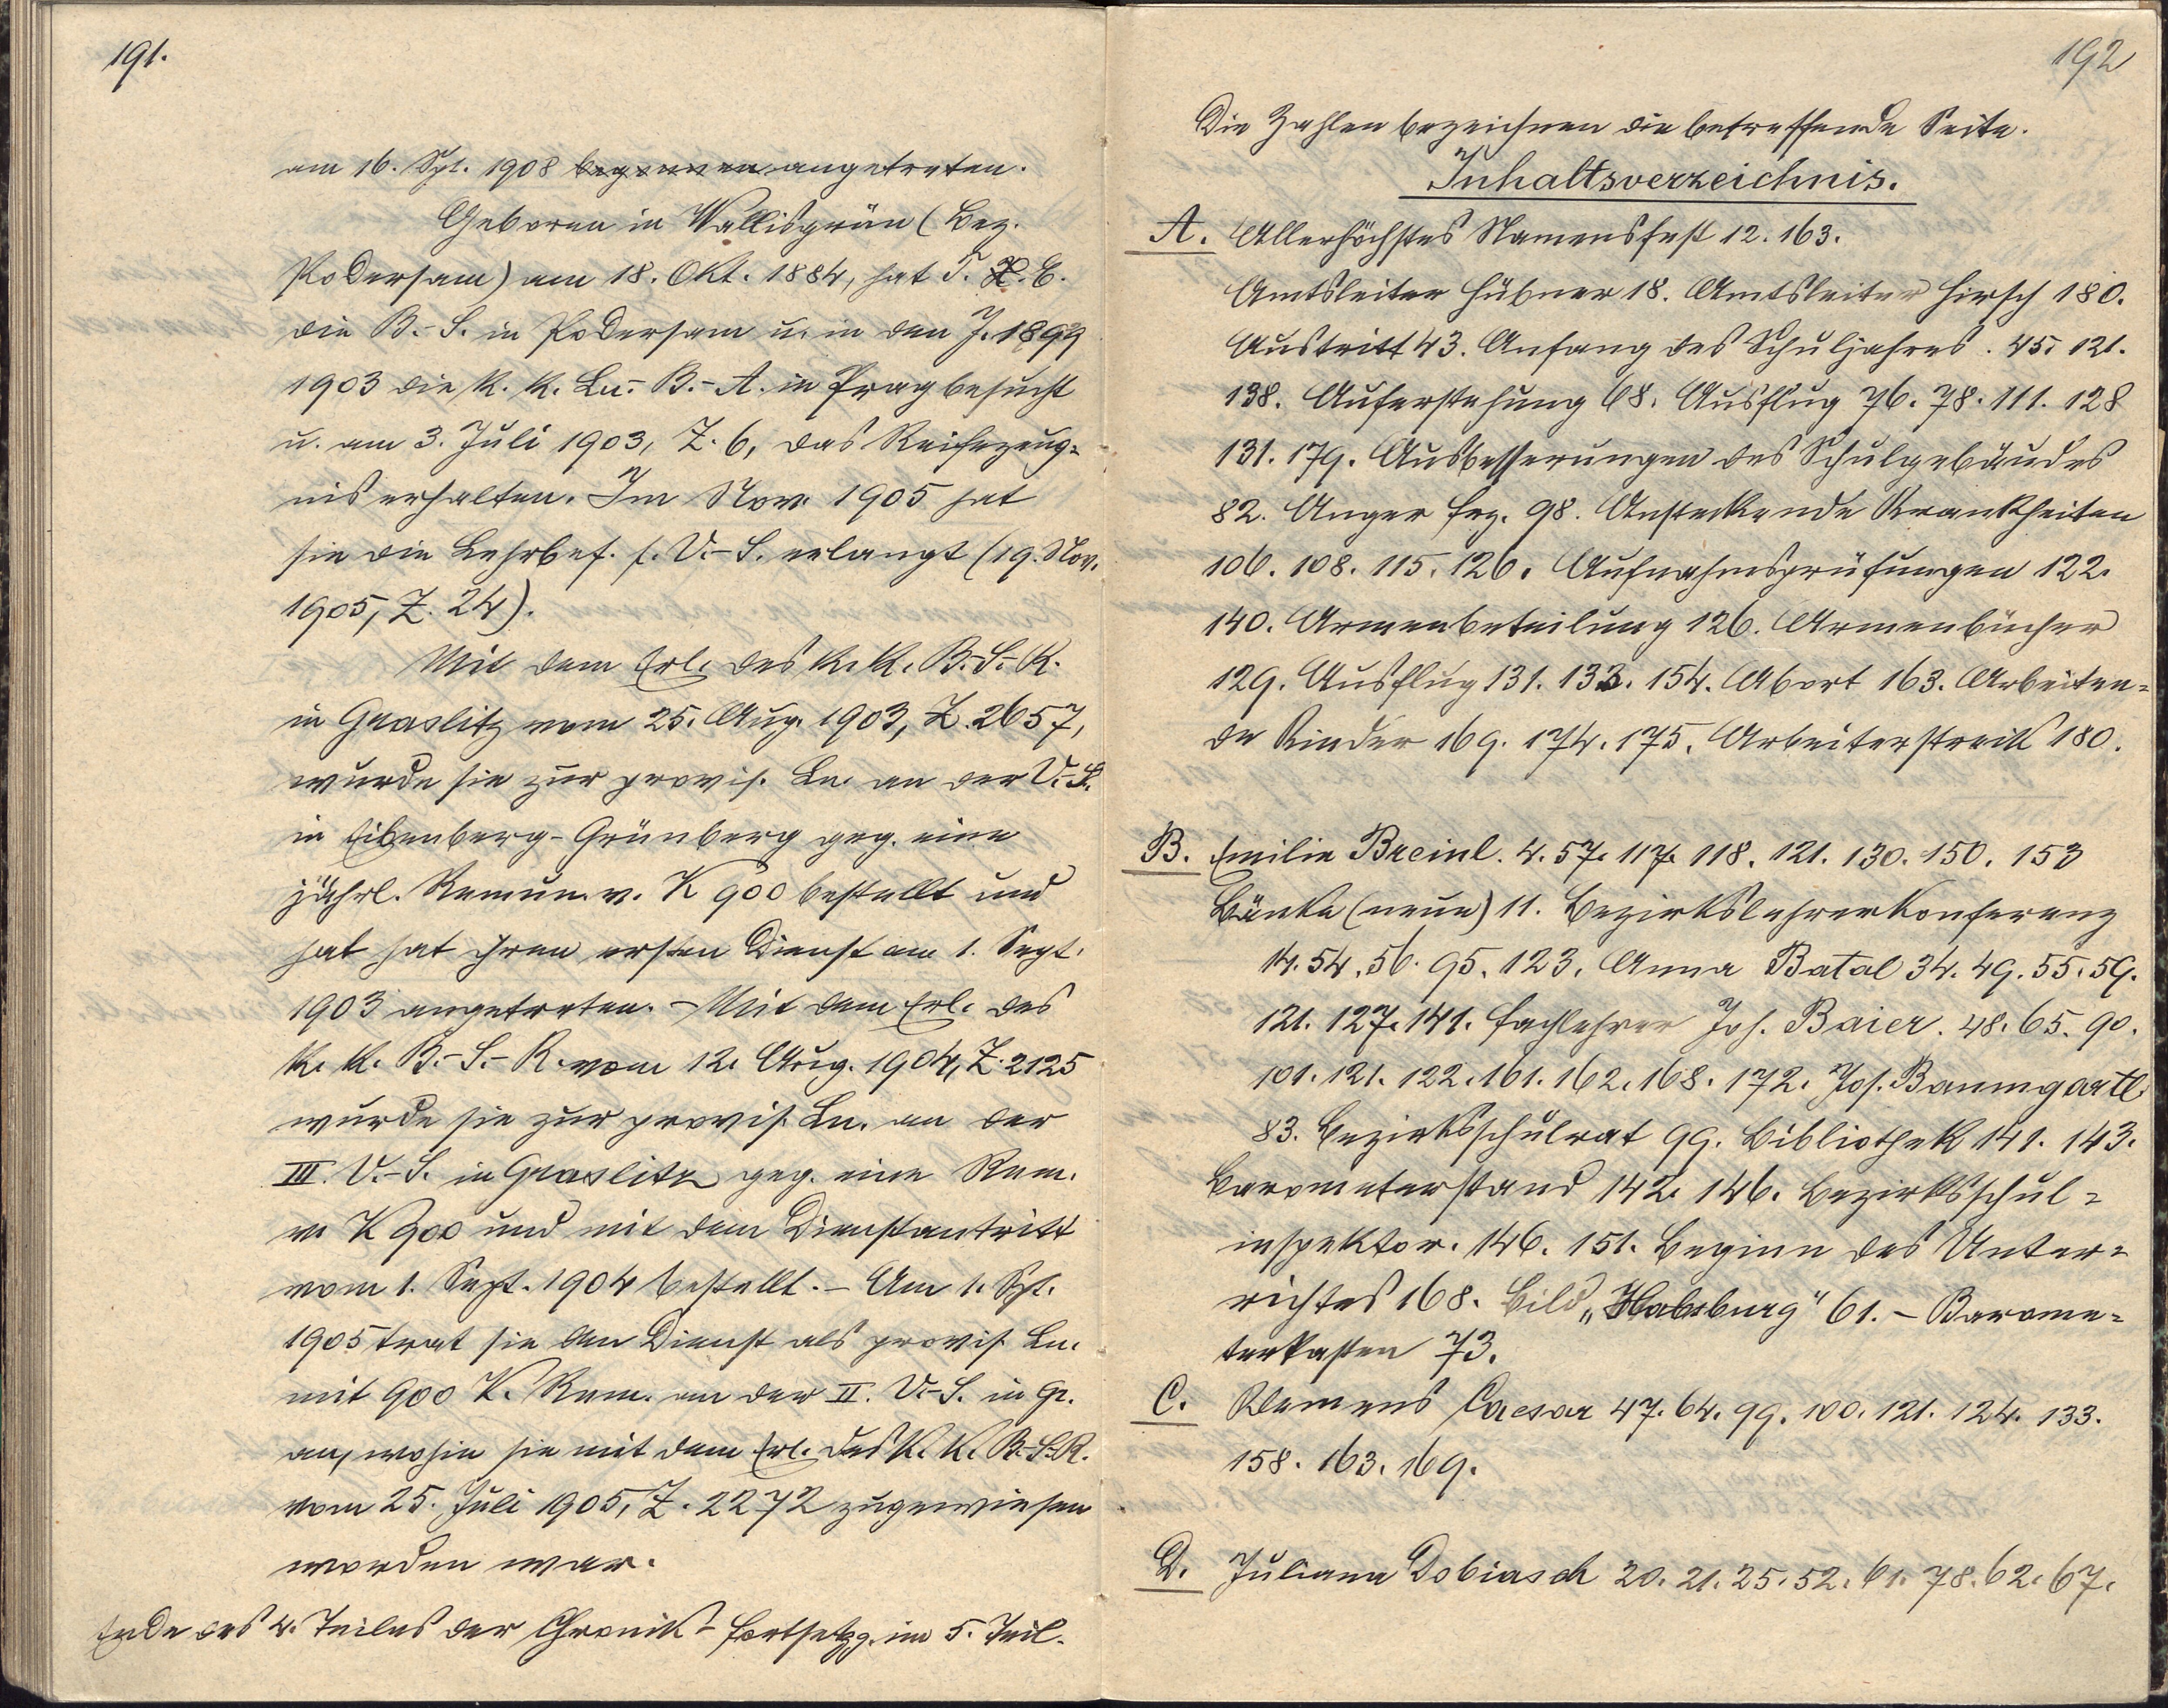 191.
am 16. Spt. 1908 begonnen angetreten.
Geboren in Wallisgrün (Bez.
Podersam) am 18. Okt. 1884, hat T. H. E.
die B.-S. in Podersam u. in den J. 1899
1903 die k. k. Ln.-B.-A. in Prag besucht
u. am 3. Juli 1903, Z. 6, das Reifezeug=
nis erhalten. Im Nov. 1905 hat
sie die Lehrbef. f. V.-S. erlangt (19. Nov.
1905, Z. 24).
Mit dem Erl. des k. k. B.-S.-R.
in Graslitz vom 25. Aug. 1903, Z. 2657,
wurde sie zur provis. Ln. an der V.-S.
in Eibenberg-Grünberg geg. eine
jährl. Remun. v. K 900 bestellt und
hat hat ihren ersten Dienst am 1. Sept.
1903 angetreten. - Mit dem Erl. des
k. k. B.-S.-R. vom 12. Aug. 1904, Z. 2125
wurde sie zur provis. Ln. an der
III. V.-S. in Graslitz geg. eine Rem.
v. K 900 und mit dem Dienstantritt
vom 1. Sept. 1904 bestellt. - Am 1. Spt.
1905 trat sie den Dienst als provis. Ln.
mit 900 K. Rem. an der II. V.-S. in Gr.
an, wohin sie mit dem Erl. des k. k. B.-S.-R.
vom 25. Juli 1905, Z. 2272 zugewiesen
worden war.
Ende des 4. Teiles der Chronik - Fortsetzg. im 5. Teil.
192
Die Zahlen bezeichnen die betreffende Seite.
Inhaltsverzeichnis.
A. Allerhöchstes Namensfest 12. 163.
Amtsleiter Hübner 18. Amtsleiter Hirsch 180.
Austritt 43. Anfang des Schuljahres. 45. 121.
138. Auferstehung 68. Ausflug 76. 78. 111. 128
131. 179. Ausbesserungen des Schulgebäudes
82. Anger Frz. 98. Ansteckende Krankheiten
106. 108. 115. 126. Aufnahmsprüfungen 122.
140. Armenbeteilung 126. Armenbücher
129. Ausflug 131. 133. 154. Abort 163. Arbeiten=
de Kinder 169. 174. 175. Arbeiterstreik 180.
B. Emilie Breinl. 4. 57. 117. 118. 121. 130. 150. 153
Bänke (neue) 11. Bezirkslehrerkonferenz
14. 54. 56. 95. 123. Anna Batal 34. 49. 55. 59.
121. 127. 141. Fachlehrer Joh. Baier. 48. 65. 90.
101. 121. 122. 161. 162. 168. 172. Jos. Baumgartl
83. Bezirksschulrat 99. Bibliothek 141. 143.
Barometerstand 142. 146. Bezirksschul=
inspektor. 146. 151. Beginn des Unter=
richtes 168. Bild „Habsburg" 61. - Barome=
terkasten 73.
C. Klemens Caesar 47. 64. 99. 100. 121. 124. 133.
158. 163. 169.
D. Juliana Dobiasch 20. 21. 25. 52. 61. 78. 62. 67.